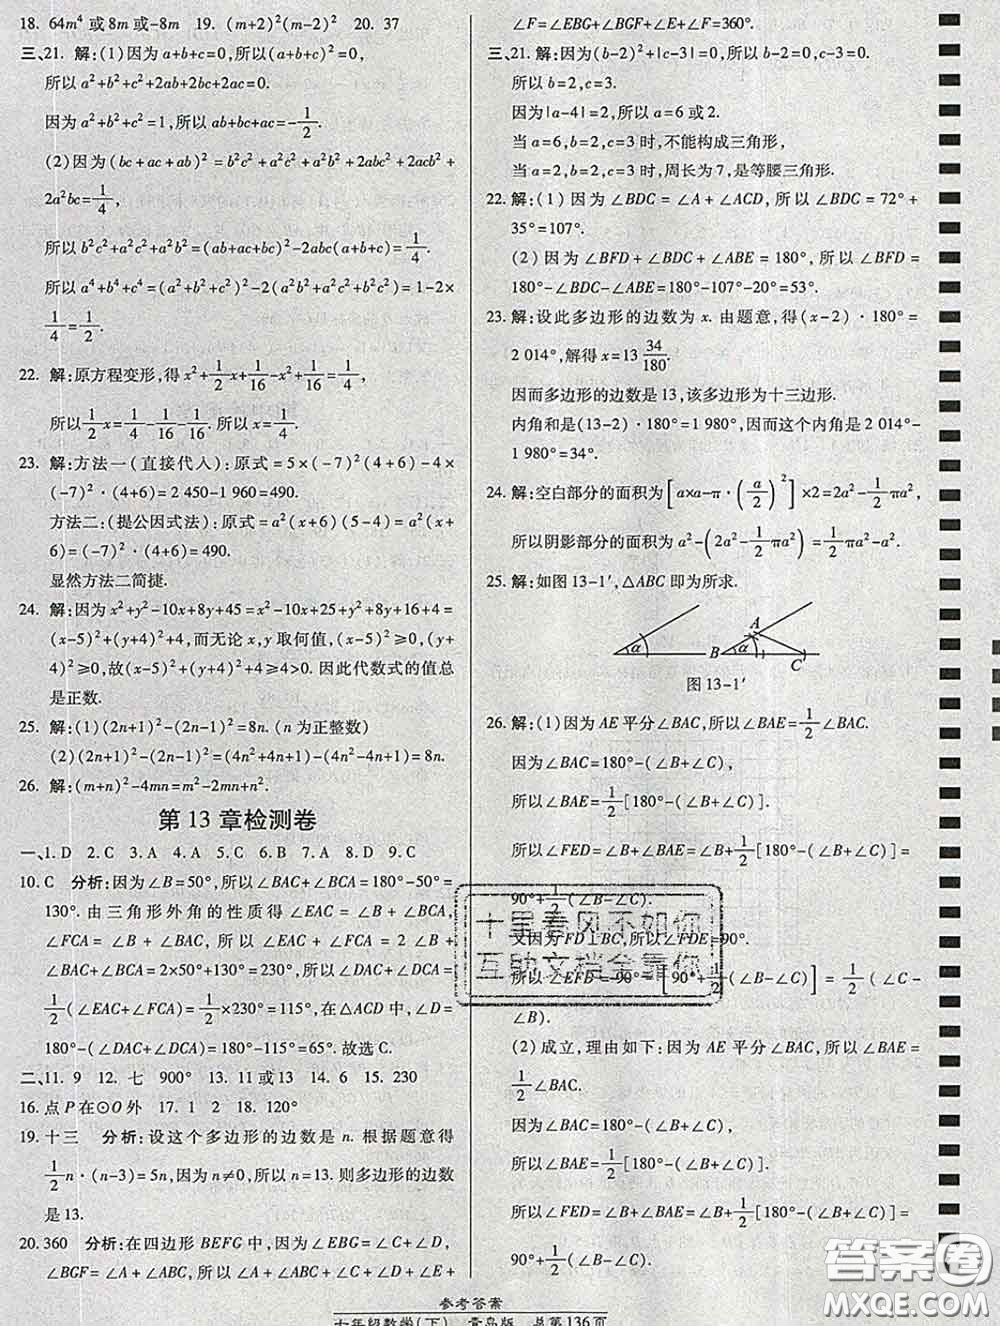 18. 64m⁴ 或 8m 或 -8m　19. (m+2)²(m-2)²　20. 37
三、21. 解:(1)因为 a+b+c=0,所以(a+b+c)²=0,
所以 a²+b²+c²+2ab+2bc+2ac=0.
因为 a²+b²+c²=1,所以 ab+bc+ac=-1/2.
(2)因为 (bc+ac+ab)²=b²c²+a²c²+a²b²+2abc²+2acb²+
2a²bc=1/4,
所以 b²c²+a²c²+a²b²=(ab+ac+bc)²-2abc(a+b+c)=1/4.
所以 a⁴+b⁴+c⁴=(a²+b²+c²)²-2(a²b²+a²c²+b²c²)=1-2×
1/4=1/2.
22. 解:原方程变形,得 x²+1/2x+1/16-x²+1/16=1/4,
所以1/2x=1/4-1/16-1/16. 所以 x=1/4.
23. 解:方法一(直接代人):原式=5×(-7)²(4+6)-4×
(-7)²·(4+6)=2 450-1 960=490.
方法二:(提公因式法):原式=a²(x+6)(5-4)=a²(x+
6)=(-7)²·(4+6)=490.
显然方法二简捷.
24. 解:因为 x²+y²-10x+8y+45=x²-10x+25+y²+8y+16+4=
(x-5)²+(y+4)²+4,而无论 x,y 取何值,(x-5)²≥0,(y+
4)²≥0,故(x-5)²+(y+4)²+4≥4>0. 因此代数式的值总
是正数.
25. 解:(1)(2n+1)²-(2n-1)²=8n. (n 为正整数)
(2)(2n+1)²-(2n-1)²=(4n²+4n+1)-(4n²-4n+1)=8n.
26. 解:(m+n)²-4mn=m²-2mn+n².
第 13 章检测卷
一、1. D　2. C　3. A　4. A　5. C　6. B　7. A　8. D　9. C
10. C　分析:因为∠B=50°,所以∠BAC+∠BCA=180°-50°=
130°. 由三角形外角的性质得∠EAC=∠B+∠BCA,
∠FCA=∠B+∠BAC,所以∠EAC+∠FCA=∠B+
∠BCA+∠B+∠BAC=2×50°+130°=230°. 所以∠DAC+
∠DCA=1/2(∠EAC+∠FCA)=1/2×230°=115°,在△ACD 中,∠D=
180°-(∠DAC+∠DCA)=180°-115°=65°. 故选 C.
二、11. 9　12. 七　900°　13. 11 或 13　14. 6　15. 230
16. 点 P 在⊙O 外　17. 1　2　18. 120°
19. 十三　分析:设这个多边形的边数是 n. 根据题意得
1/2n·(n-3)=5n,因为 n≠0,所以 n=13. 则多边形的边数
是 13.
20. 360　分析:在四边形 BEFG 中,因为∠EBG=∠C+∠D,
∠BGF=∠A+∠ABC,所以∠A+∠ABC+∠C+∠D+∠E+
∠F=∠EBG+∠BGF+∠E+∠F=360°.
三、21. 解:因为(b-2)²+|c-3|=0,所以 b-2=0,c-3=0.
所以 b=2,c=3.
因为|a-4|=2,所以 a=6 或 2.
当 a=6,b=2,c=3 时,不能构成三角形,
当 a=2,b=2,c=3 时,周长为 7,是等腰三角形.
22. 解:(1)因为∠BDC=∠A+∠ACD,所以∠BDC=72°+
35°=107°.
(2)因为∠BFD+∠BDC+∠ABE=180°,所以∠BFD=
180°-∠BDC-∠ABE=180°-107°-20°=53°.
23. 解:设此多边形的边数为 x. 由题意,得(x-2)·180°=
2 014°,解得 x=13 34/180.
因而多边形的边数是 13,该多边形为十三边形.
内角和是(13-2)·180°=1 980°,因而这个内角是 2 014°-
1 980°=34°.
24. 解:空白部分的面积为[a×a-π·(a/2)²]×2=2a²-1/2πa²,
所以阴影部分的面积为 a²-(2a²-1/2πa²)=1/2πa²-a².
25. 解:如图 13-1′,△ABC 即为所求.
α B α A C
图 13-1′
26. 解:(1)因为 AE 平分∠BAC,所以∠BAE=1/2∠BAC.
因为∠BAC=180°-(∠B+∠C),
所以∠BAE=1/2[180°-(∠B+∠C)].
所以∠FED=∠B+∠BAE=∠B+1/2[180°-(∠B+∠C)]=
90°+1/2(∠B-∠C).
又因为 FD⊥BC,所以∠FDE=90°.
所以∠EFD=90°-[90°+1/2(∠B-∠C)]=1/2(∠C-
∠B).
(2)成立,理由如下:因为 AE 平分∠BAC,所以∠BAE=
1/2∠BAC.
因为∠BAC=180°-(∠B+∠C),
所以∠BAE=1/2[180°-(∠B+∠C)].
所以∠FED=∠B+∠BAE=∠B+1/2[180°-(∠B+∠C)]=
90°+1/2(∠B-∠C).
十里春风不如你
互助文档全靠你
参考答案
七年级数学(下)　青岛版　总第136页
答案圈
MXQE.COM